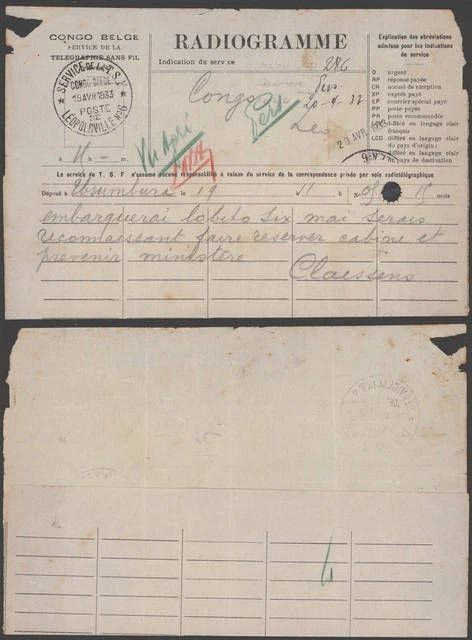 CONGO BELGE
SERVICE DE LA
TELEGRAPHIE SANS FIL
RADIOGRAMME
Indication de service
286
Explication des abréviations
admises pour les indications
de service
D urgent
RP réponse payée
CR accusé de réception
XP exprès payé
LP courrier spécial payé
PP poste payée
PR poste recommandée
différé en langage clair
français
LCD différé en langage clair
du pays d'origine
différé en langage clair
de pays de destination
SERVICE DE LA T.S.F.
CONGO BELGE
19 AVR 1933
POSTE
DE
LEOPOLDVILLE No 6
Congo
20-4-33
Leo
20 AVR. 1933
à H - m.
Le service de T. S. F. n'assume aucune responsabilité à raison du service de la correspondance privée par voie radiotélégraphique
Déposé à Usumbura le 19 11 h No 09 15 mots
embarquerai lobito six mai serais
reconnaissant faire reserver cabine et
prevenir ministère
Claessens